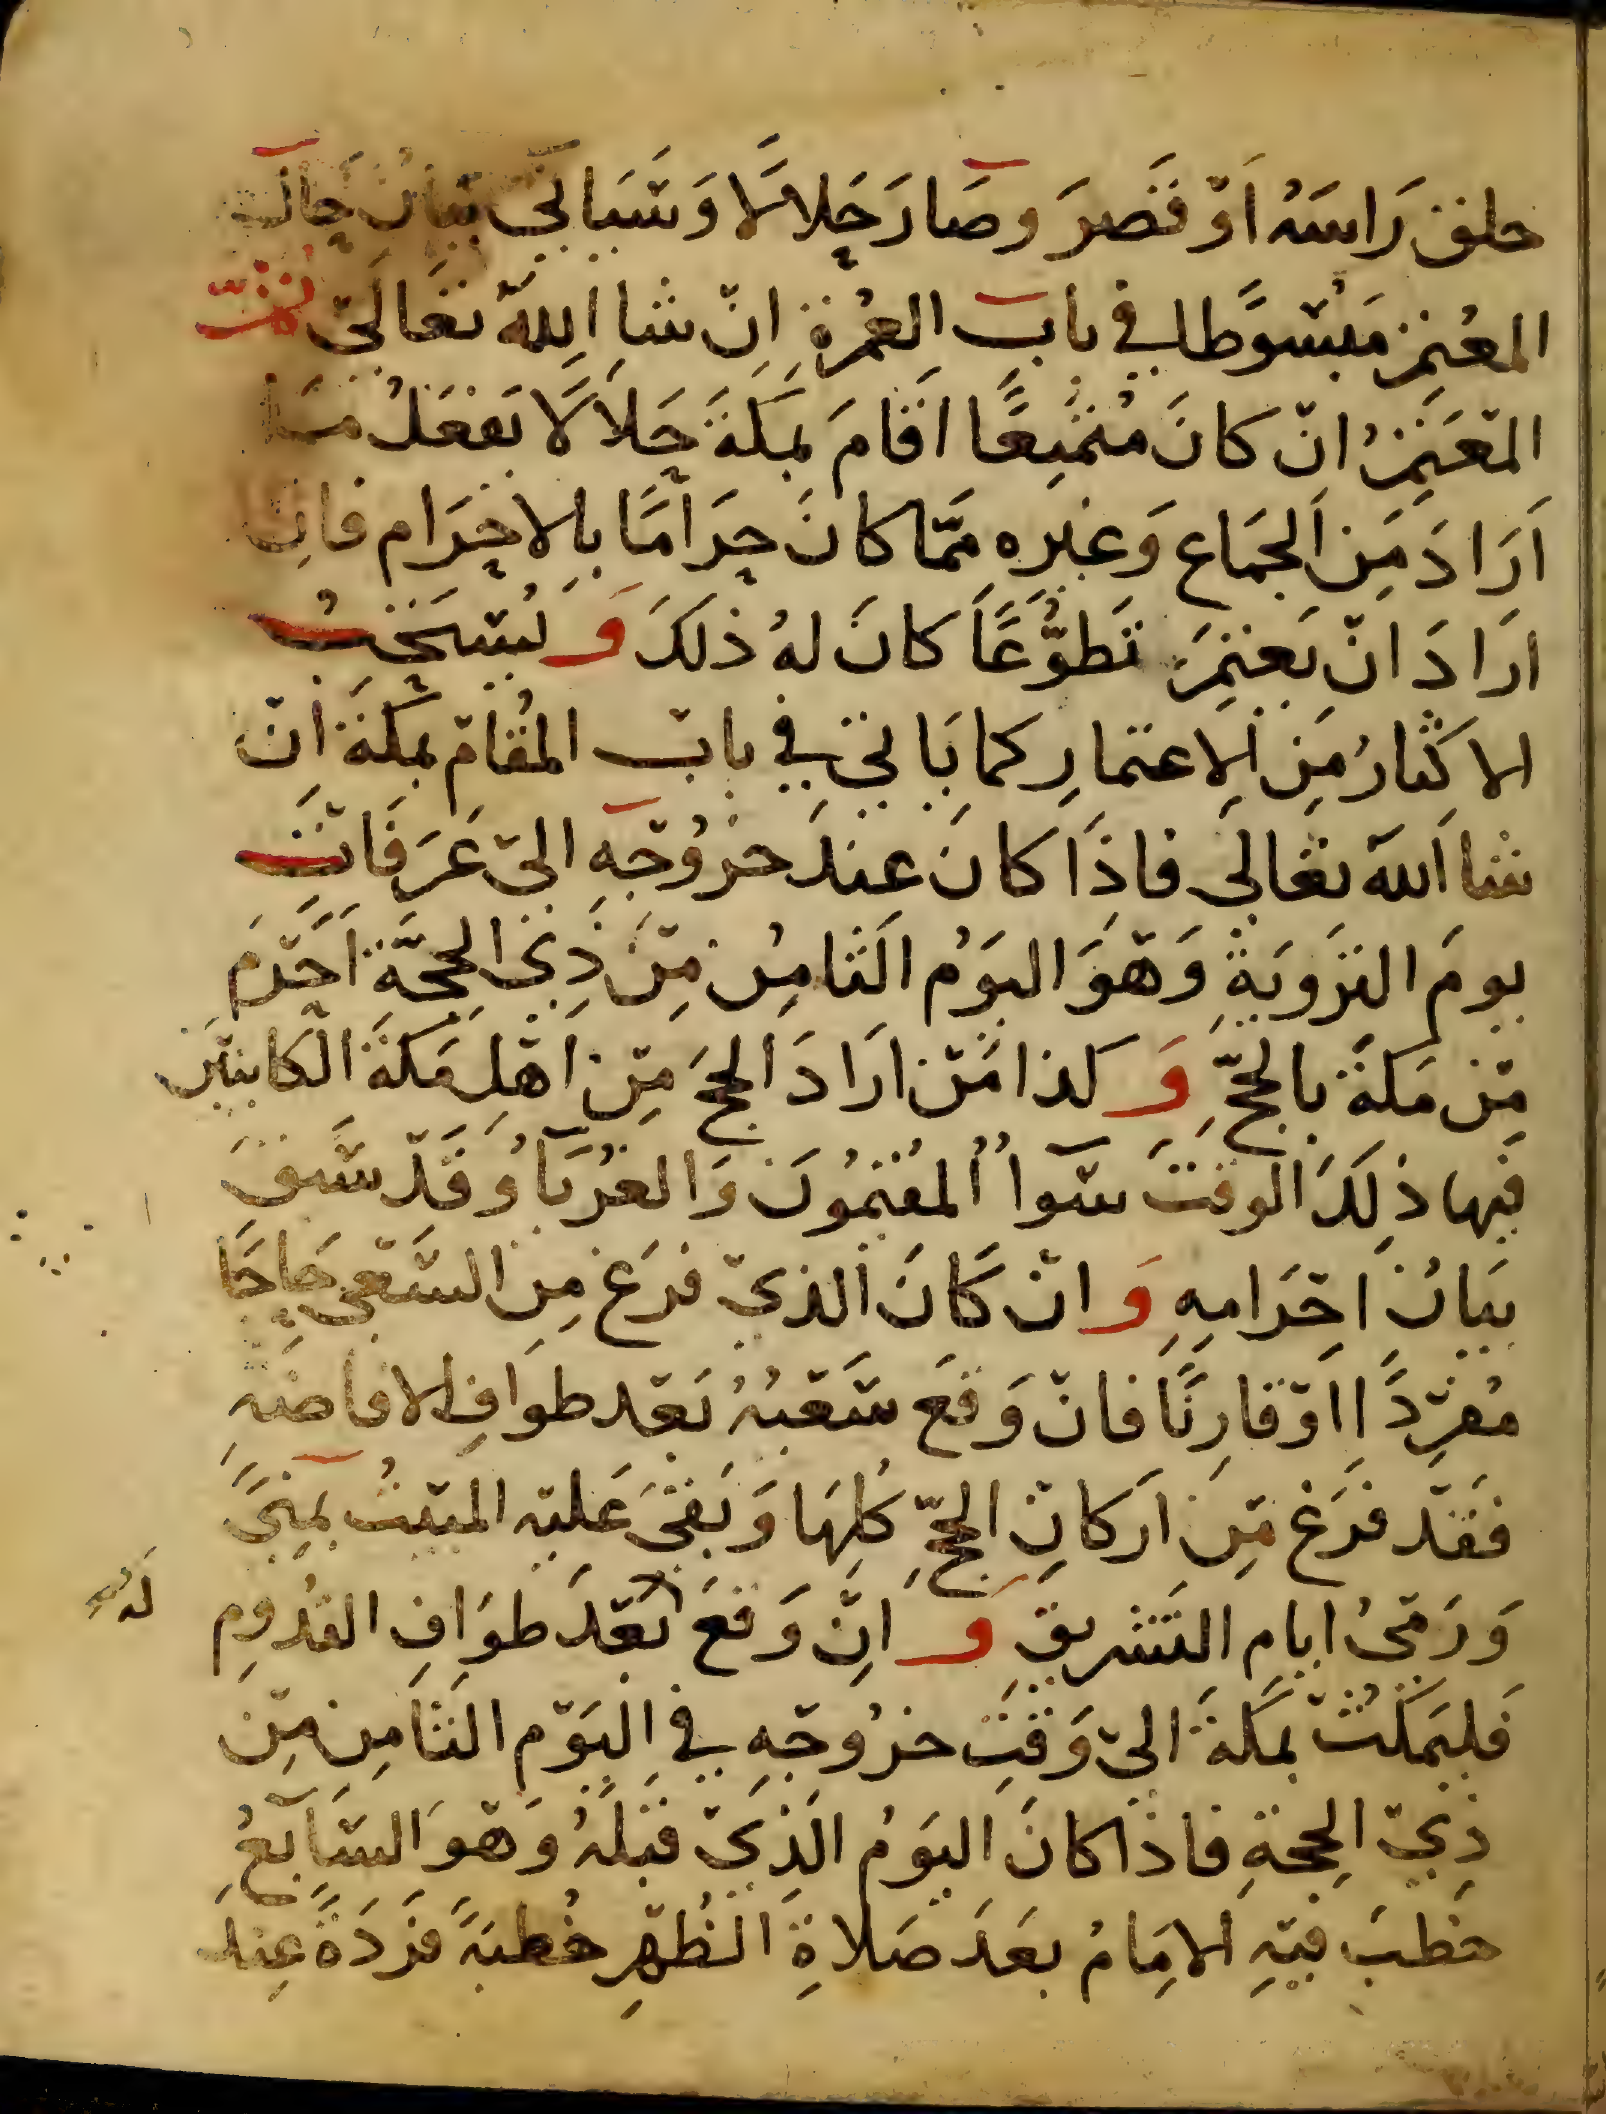 حلق رَاسَهُ اَوْ قَصرَ وصَارَ حَلالًا وَسَيَاتي بيَانُ حال
المعْتمِر مَبْسُوطا في باب العُمرةِ اِنْ شا اللهُ تعَالَى ثُمَّ
المعْتَمِرُ انْ كانَ مُتَمتِعًا اَقَامَ بمَكةَ حَلالًا يَفعَلُ مَا
اَرَادَ مِنَ الجمَاع وَغيره مَّما كانَ حرَامًا بالاحْرَام فان
ارَادَ انْ يَعْتمِرَ تَطوُّعًا كانَ لهُ ذلكَ وَيُسْتَحَبُّ
الاكثارُ مِنَ الاعتمارِ كما يَاتي في باب المُقام بمَكةَ انْ
شا اللهُ تعَالى فاذَا كانَ عِندَ خرُوْجهِ الىْ عَرَفَاتٍ
يومَ الترويَةِ وَهْوَ اليَوْمُ الثامِنُ مِنْ ذي الحجَّةِ احْرَمَ
مِنْ مَكةَ بالحجِّ وَكذا مَنْ ارَادَ الحجَ مِن اَهْلِ مَكةَ الكاينيْنَ
فيها ذلِكَ الوقتَ سَوا المقيْمُونَ وَالغُرَبَآءُ وَقَدْ سَبَقَ
بيَانُ احْرَامهِ وَانْ كَانَ الذيْ فرَغ مِن السَّعْي حَاجًا
مُفْردًا اَوْ قارِنًا فانْ وَقعَ سَعْيُهُ بَعْد طوَافِ الافاضةِ
فَقدْ فرَغ مِنَ اركانِ الحجِّ كُلِّهَا وَبَقىَ عَليْه المَبيْتُ بمِنىً
وَرَمْىُ ايام التَشريقِ وَانْ وَقعَ بَعْدَ طوَافِ القُدُومِ
فَليَمكُثْ بمكةَ الىْ وَقتِ خرُوْجهِ في اليَوْم الثامِن مِنْ
ذِيْ الحِجةِ فاذا كانَ اليَوْمُ الَذِيْ قَبْلَهُ وَهْوَ السَّابعُ
خطَبَ فيْهِ الامَامُ بعَدَ صَلاةِ الظُهْرِ خُطبَةً فرْدَةً عِندَ